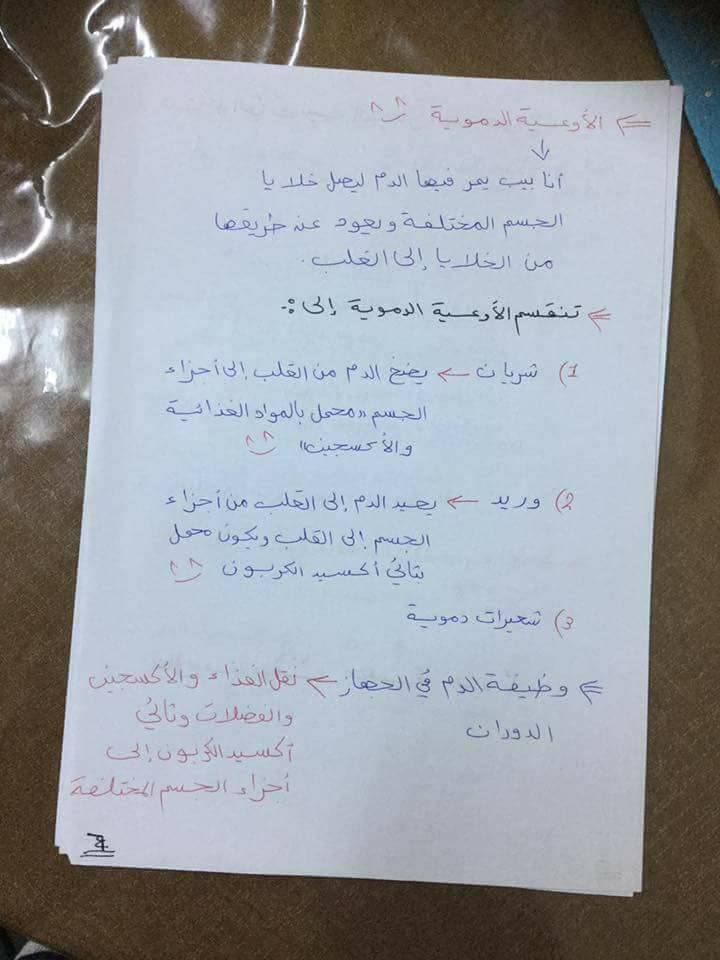 ⇐ الأوعية الدموية
↓
أنابيب يمر فيها الدم ليصل خلايا
الجسم المختلفة ويعود عن طريقها
من الخلايا إلى القلب.
⇐ تنقسم الأوعية الدموية إلى :-
1) شريان ← يضخ الدم من القلب إلى أجزاء
الجسم "محمل بالمواد الغذائية
والأكسجين"
2) وريد ← يعيد الدم إلى القلب من أجزاء
الجسم إلى القلب ويكون محمل
بثاني أكسيد الكربون
3) شعيرات دموية
⇐ وظيفة الدم في الجهاز ← نقل الغذاء والأكسجين
الدوران والفضلات وثاني
أكسيد الكربون إلى
أجزاء الجسم المختلفة